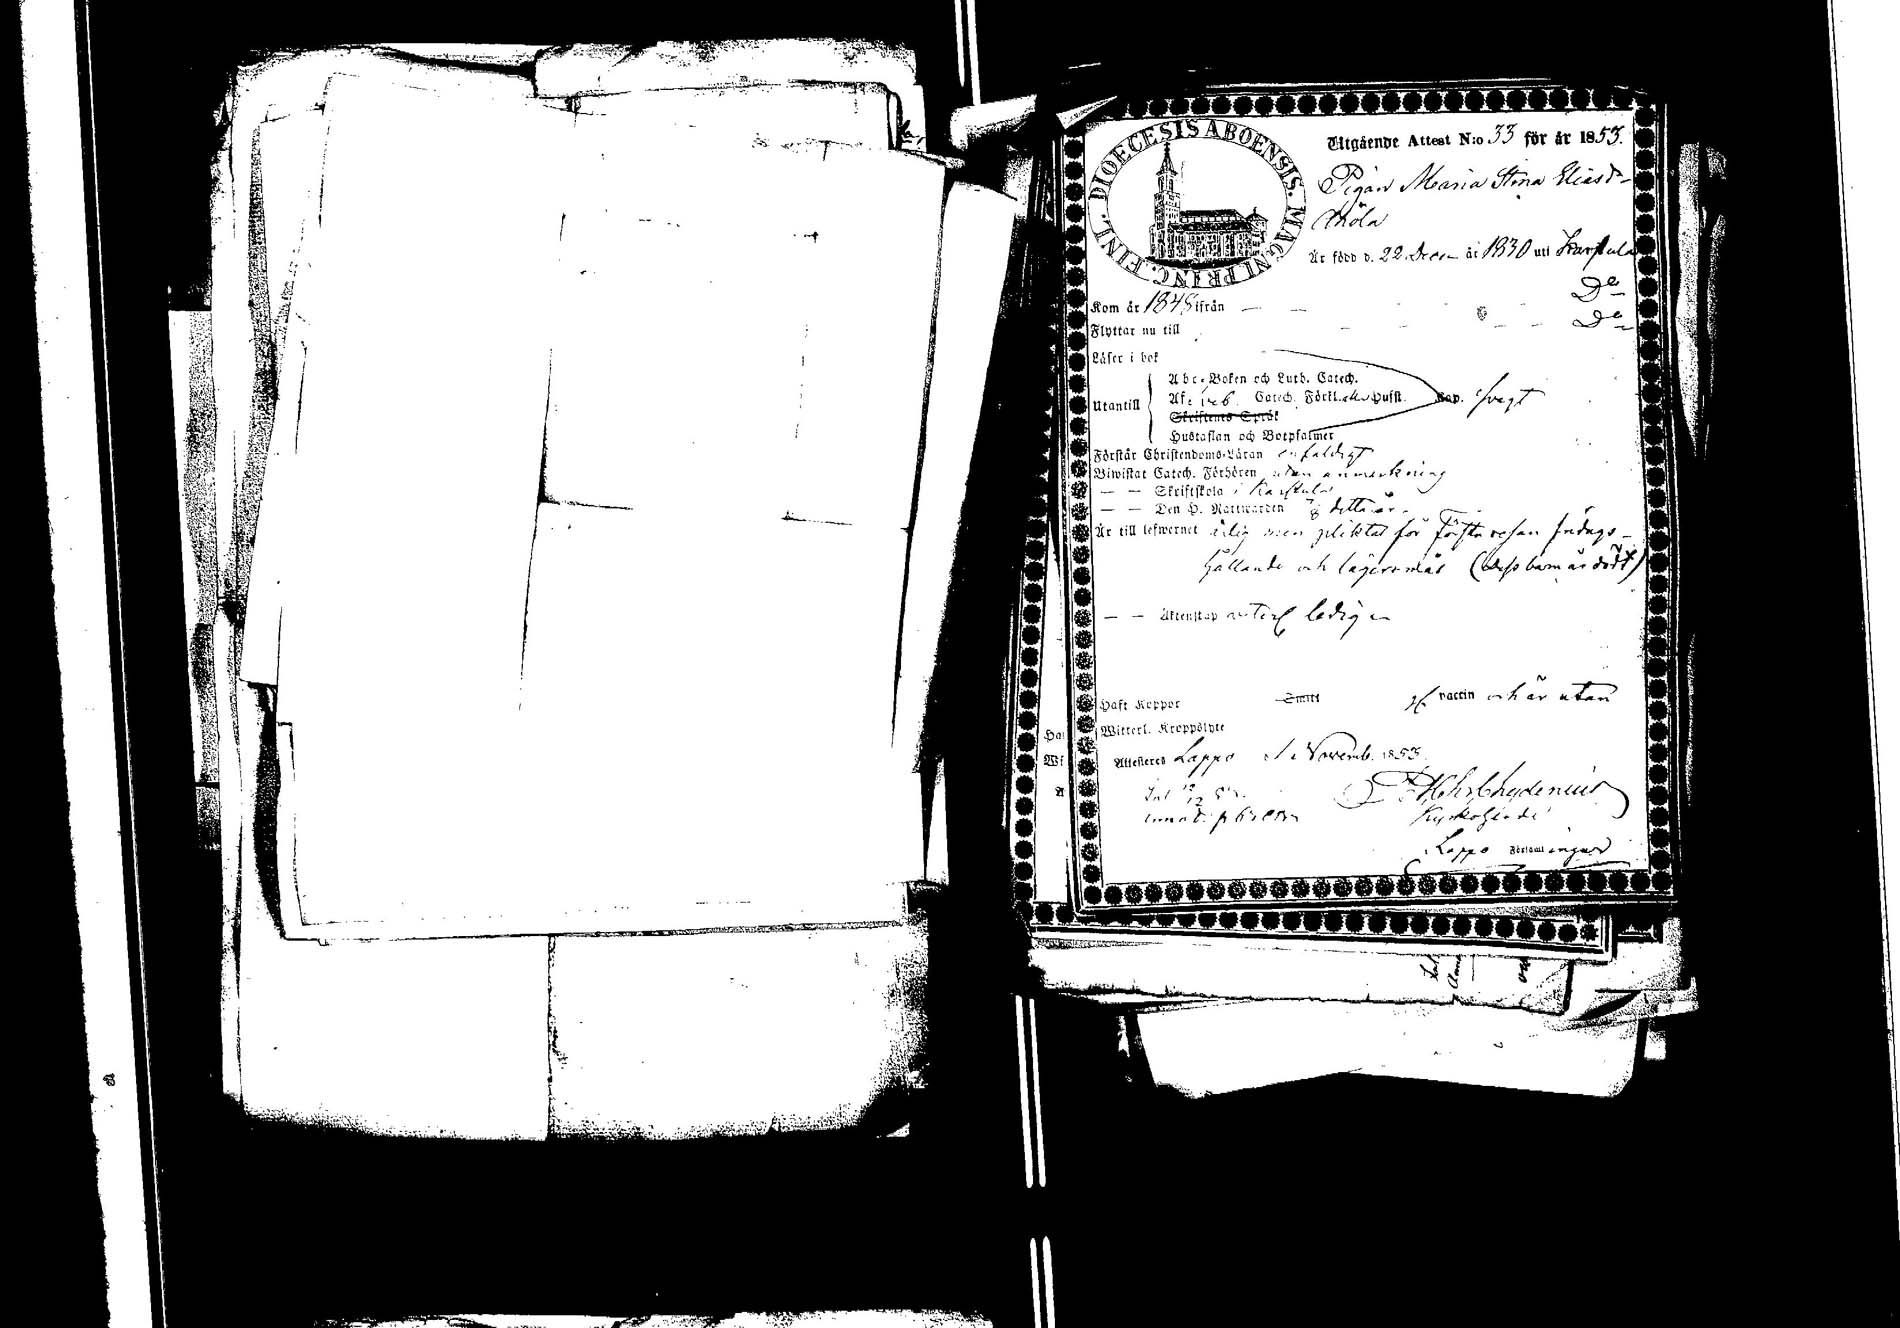 DIOECESIS ABOENSIS. MAGNI PRINC. FINL.
Utgående Attest N:o 33 för år 1853.
Pigan Maria Stina Eliasd-
Är född d. 22 Decem år 1830 uti Karstula
Kom år 1848 ifrån — — Do
Flyttar nu till — — — — Do
Läser i bok
Abc-Boken och Luth. Catech.
Utantill Catech. Förkl. Hufst. Cap. svagt
Skriftenes Språk
Hustaflan och Botpsalmer
Förstår Christendoms-Läran enfaldigt
Biwistat Catech. Förhören utan anmerkning
— — Skriftskola i Karstula
— — Den H. Nattwarden detta år.
Är till lefwernet ärlig men pliktat för första resan
hållande och lägersmål (dess barn är dödt)
— — Äktenskap ledig
Haft Koppor Smitt vaccin och är utan
Witterl. Kroppslyte
Attesteras Lappo d. 1 Novemb. 1853.
Chydenius
Lappo Församlingar